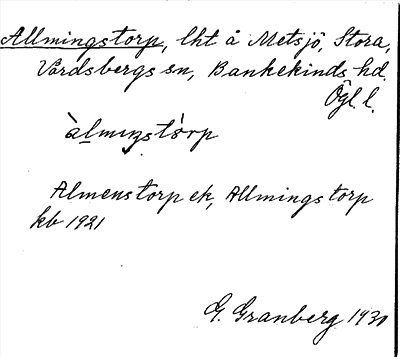 Allmingstorp, lht å Metsjö, Stora,
Vårdsbergs sn, Bankekinds hd.
Ögl. l.
àlmiŋstórp
Almenstorp ek, Allmingstorp
kb 1921
G. Granberg 1930